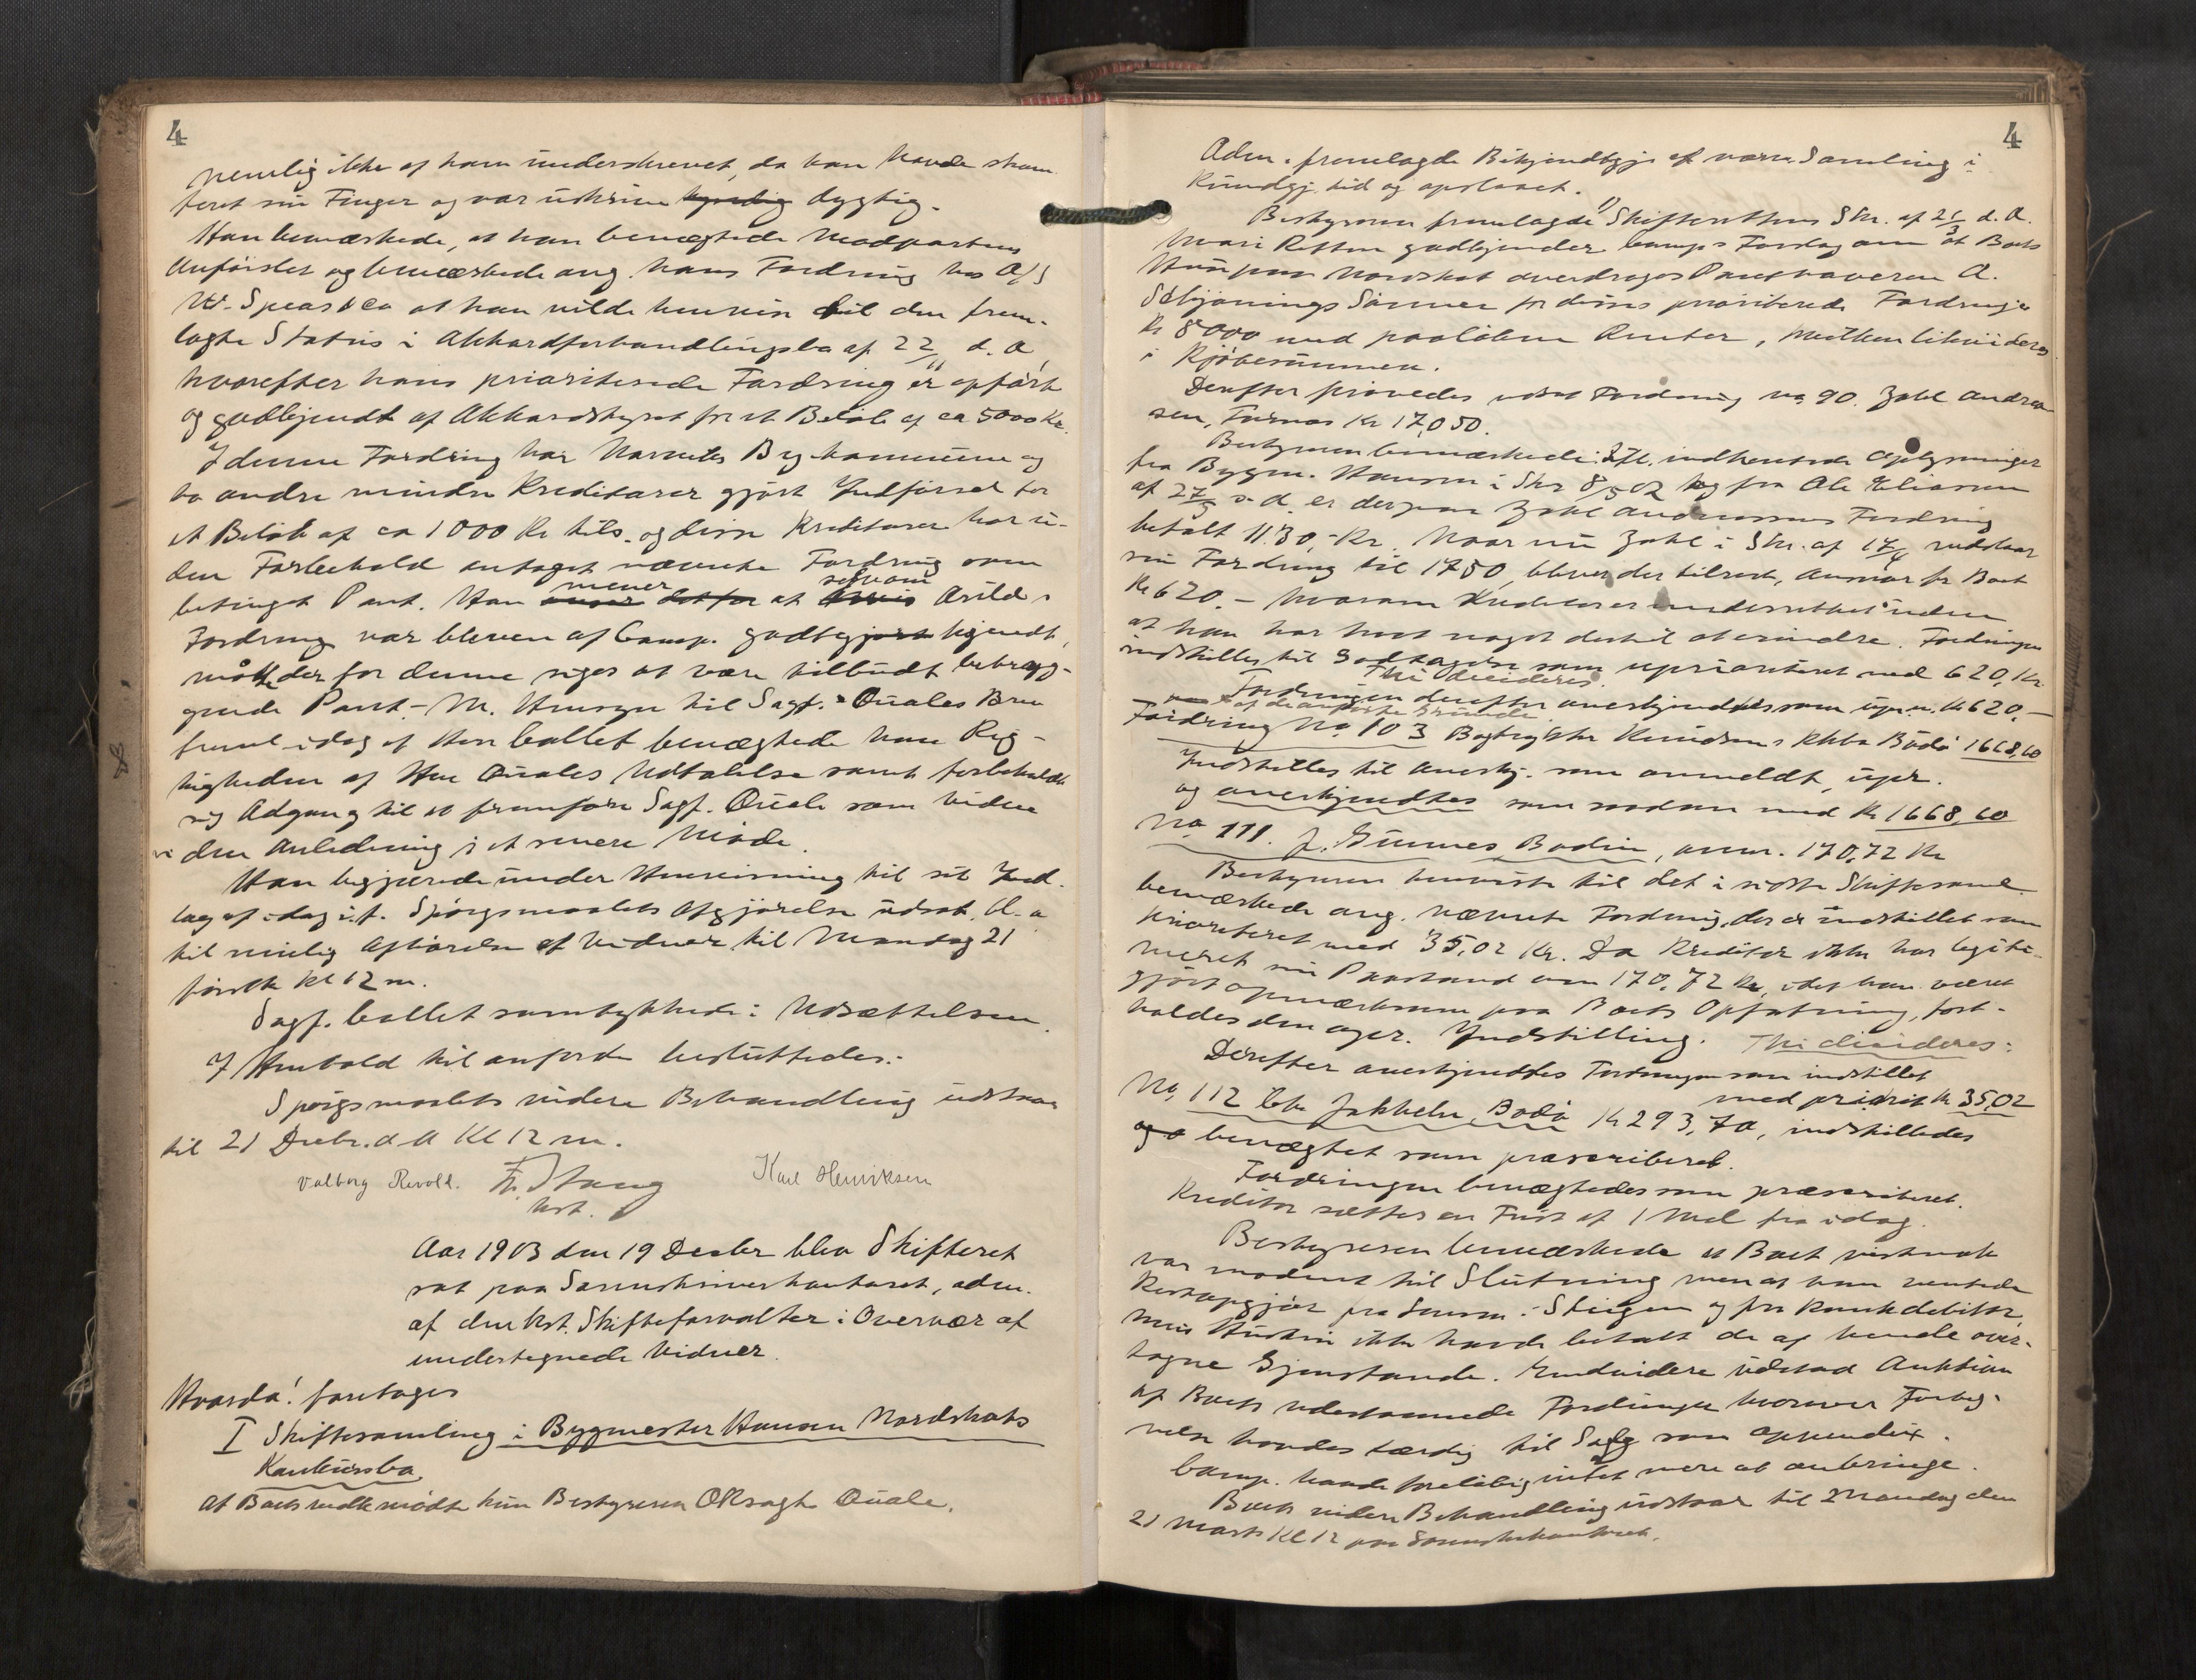 4
nemlig ikke af ham underskrevet, da han havde skam
feret sin Finger og var uskrive kyndig dygtig.
Han bemærkede, at han benegtede Modpartens
Anførsler og bemærkede ang. hans Fordring hos A/S
W. Spears & Co at han vilde henvise til den frem-
lagte Status i Akkordforhandlingsbo af 22/11 d. A,
hvorefter hans prioriterede Fordring er opført
og godkjendt af Akkordstyret for et Beløb af ca 5000 Kr.
I denne Fordring har Narviks Bykommune og
to andre mindre Kreditorer gjort Indførsel for
et Beløb af ca 1000 Kr tils. og disse Kreditorer har u-
den Forbehold antaget nævnte Fordring som
betinget Pant. Han mener at selvom Arild s
Fordring var bleven af Comp. godkjendt,
måtte der for denne siges at være tilbudt betryg-
gende Pant.- M. Hensyn til Sagf. Quales Brev
freml. idag af Herr Collet benægtede han Rig-
tigheden af Herr Quales Udtalelse samt forbeholdt
sig Adgang til at fremføre Sagf. Quale som Vidne
i den Anledning i et senere Møde.
Han begjærede under Henvisning til sit Ind-
læg af idag i. f. Spørgsmaalets Afgjørelse udsat, bl. a
til mulig Afhørelse af Vidner til Mandag 21
førstk Kl 12 m.
Sagf. Collet samtykkede i Udsættelsen.
I Henhold til anførte besluttedes:
Spørgsmaalets videre Behandling udstaar
til 21 Decbr. d A Kl 12 m.
Valborg Revold. Fr. Stang Karl Henriksen
kst.
Aar 1903 den 19 Decbr blev Skifteret
sat paa Sorenskriverkontoret, adm.
af den kst. Skifteforvalter i Overvær af
undertegnede Vidner.
Hvorda! foretoges
I Skiftesamling i Bygmester Hansen Nordskots
Konkursbo
Af Boets vedk mødte kun Bestyreren OKrsagf. Quale.
4
Adm. fremlagde Bekjendtgj. af nærv. Samling i
Kundgj. tid og opslaaet.
Bestyreren fremlagde Skifterettens Skr. af 21/3 d. A.
hvori Retten godkjender Comp s Forslag om at Boets
Hus paa Nordskot overdrages Panthaveren A.
Schjønings Sønner for disses prioriterede Fordring
Kr 8000 med paaløbne Renter, hvilken likvideres
i Kjøbesummen.
Derefter prøvedes udsat Fordring no 90. Zakl Andrea
sen, Furnes Kr 1750.
Bestyreren bemærkede: Ifl. indhentede Oplysninger
fra Bygm. Hansen i Skr 8/5 02 og fra Ole Eliassen
af 27/5 s. d. er derpaa Zakl Andreassens Fordring
betalt 1130,- Kr. Naar nu Zakl i Skr. af 17/4 nedslaar
sin Fordring til 1750, bliver der tilrest, Ansvar for Boet
Kr 620.- hvorom Kreditor er underrettet uden
at han har havt noget dertil at erindre. Fordringen
indstilles til Godtagelse som uprioriteret med 620, Kr.
Thi decideres.
Fordringen derefter anerkjendtes som upr. m. Kr 620.-
af de anførte Grunde
Fordring No 103 Bogtrykker Knudsens Kkbo Bodø 1668,60
Indstilles til Anerkj. som anmeldt, upr.
og anerkjendtes som saadan med Kr 1668,60
No 111. J. Gunnes Bodin, anm. 170,72 Kr
Bestyreren henviste til det i sidste Skiftesaml
bemærkede ang. nævnte Fordring, der er indstillet som
prioriteret med 35,02 Kr. Da Kreditor ikke har legiti-
meret sin Paastand om 170,72 Kr, idet han været
gjort opmærksom paa Boets Opfatning, fast-
holdes den oprr. Indstilling. Thi decideres:
Derefter anerkjendtes Fordringen som indstillet
med priorit Kr 35,02
No 112 Chr Jakhelln, Bodø Kr 293,70, indstilledes
og benægtet som præscriberet.
Fordringen benægtedes som præscriberet.
Kreditor sættes en Frist af 1 Md fra idag.
Bestyreren bemærkede at Boet vistnok
var modent til Slutning men at han ventede
Restopgjør fra Sorenskr. i Steigen og fra Konkdebitor,
hvis Hustru ikke havde betalt de af hende over-
tagne Gjenstande. Endvidere udstod Auktion
af Boets udestaaende Fordringer hvorover Forteg-
nelse havdes færdig til Salg som appendix.
Comp. havde foreløbig intet mere at anbringe.
Boets videre Behandling udstaar til Mandag den
21 Marts Kl 12 paa Sorenskrkontoret.